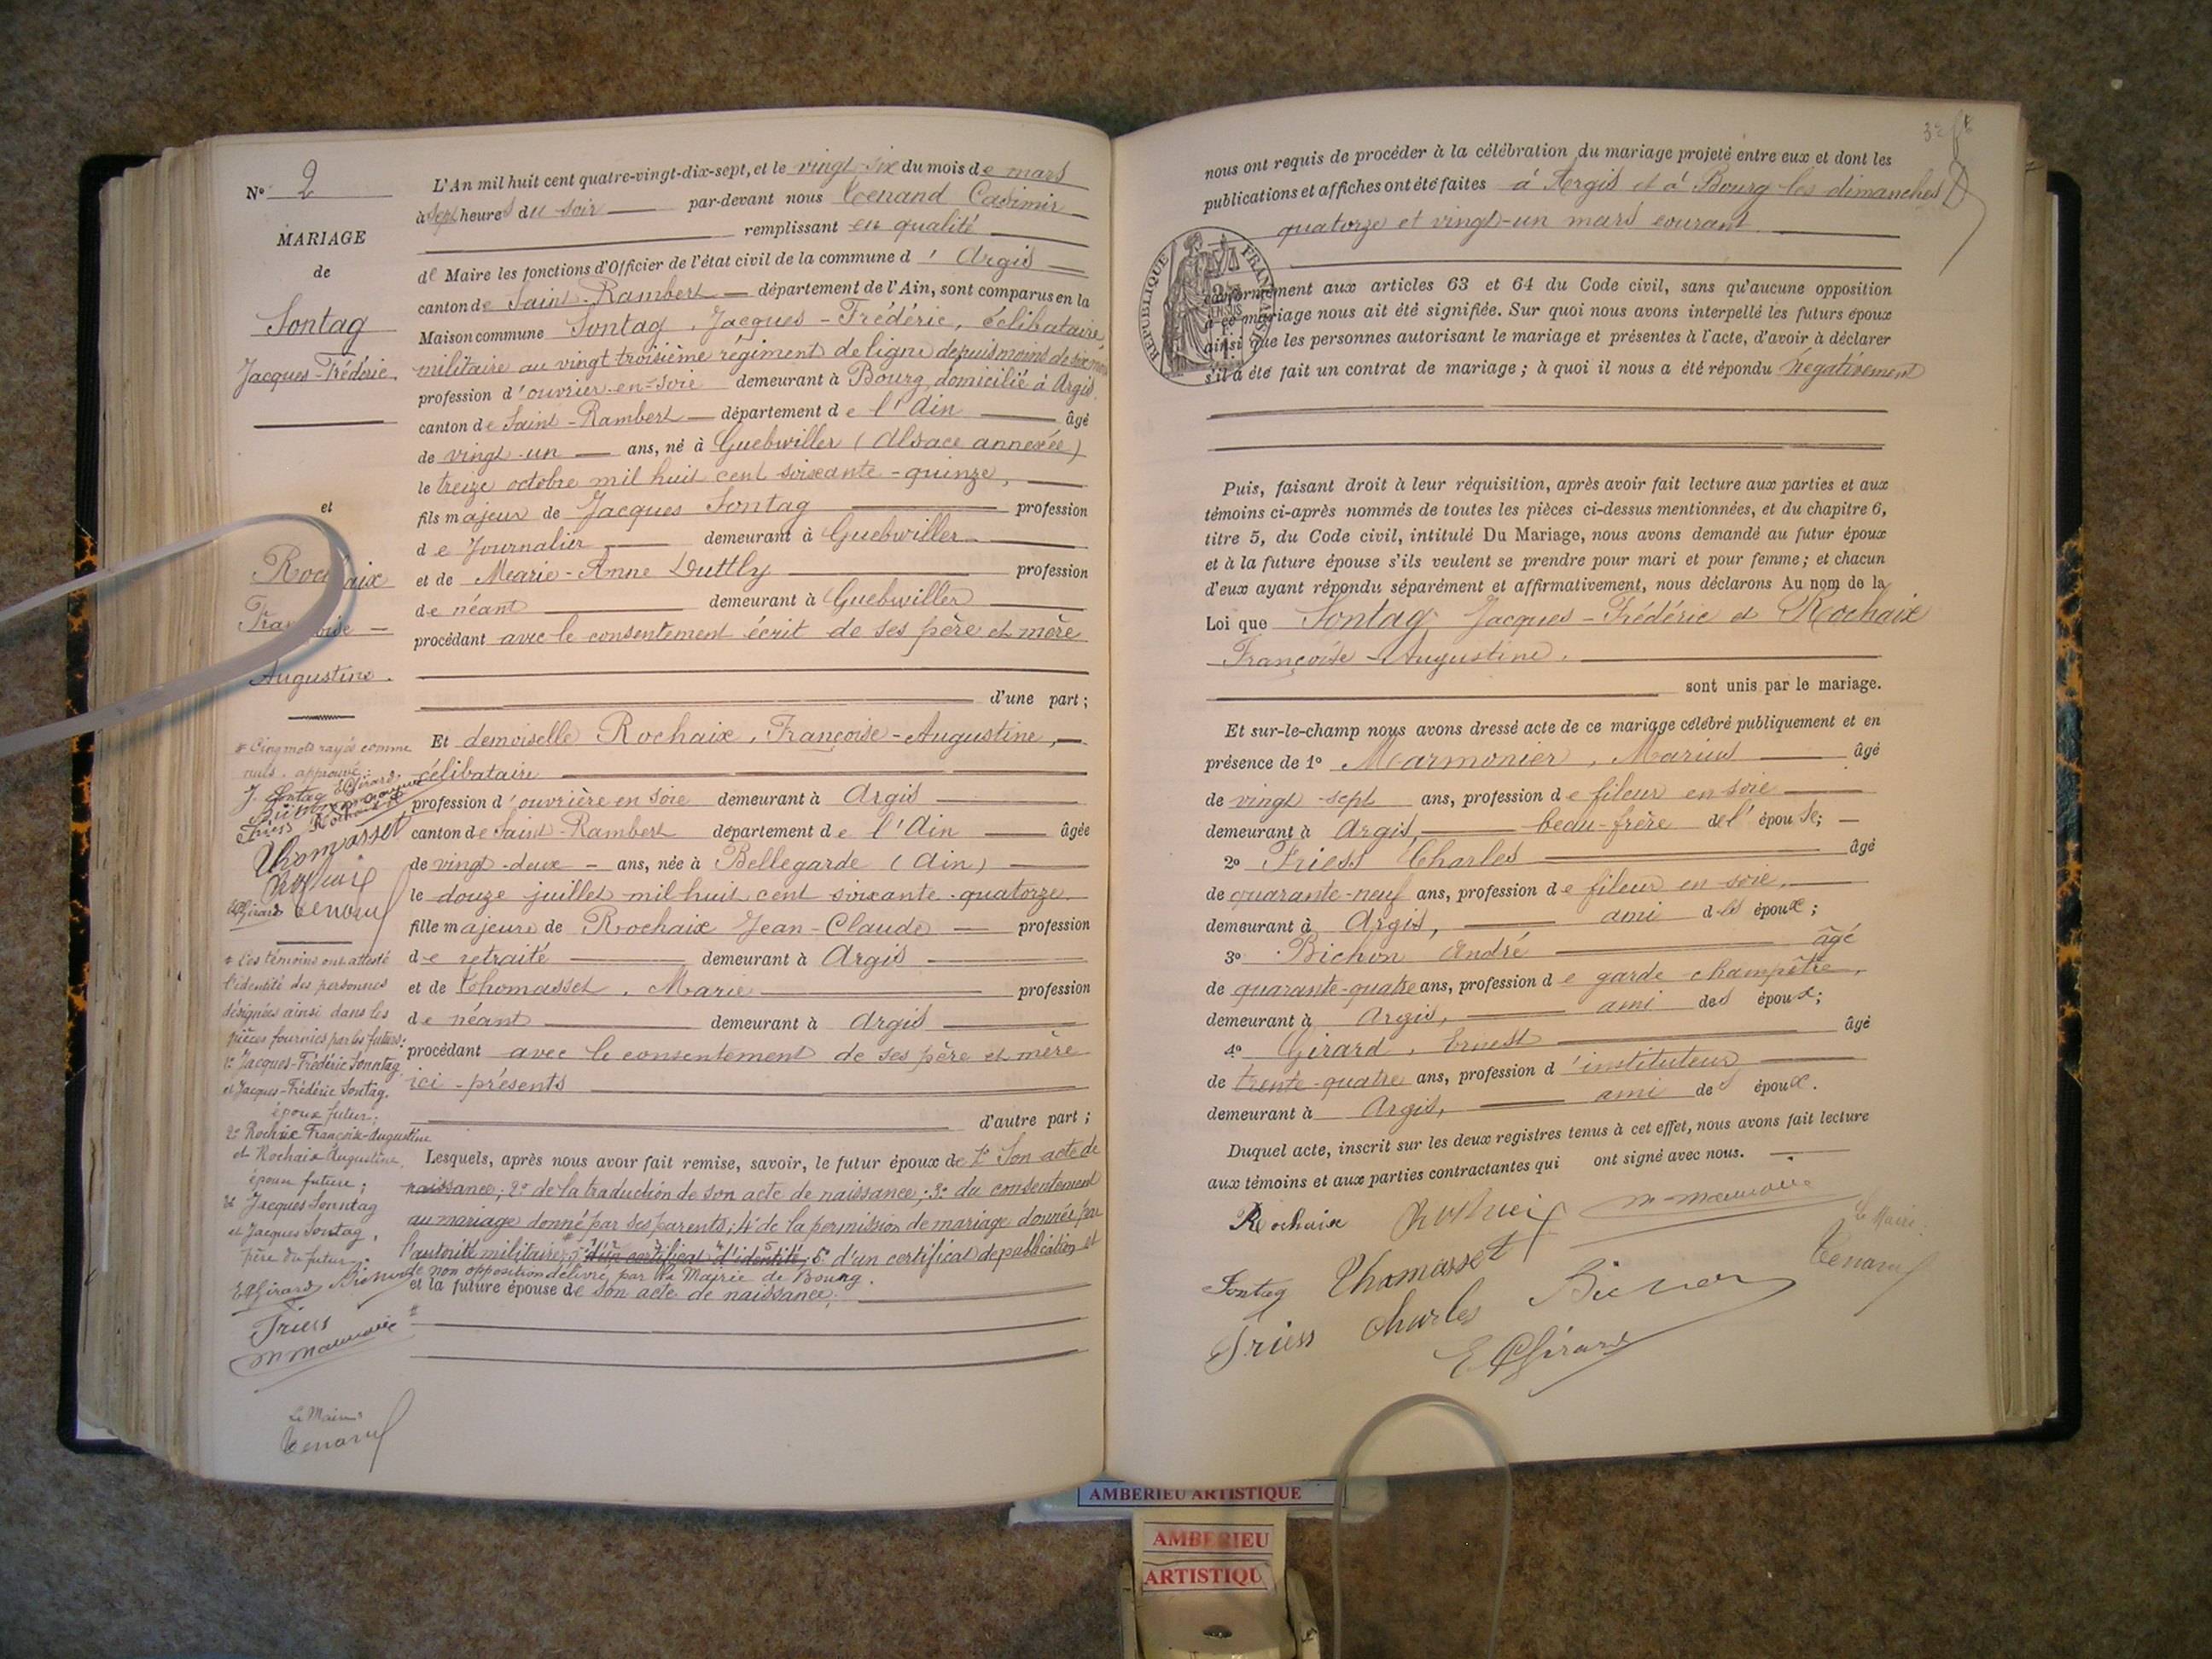 N° 2
MARIAGE
de
Sontag
Jacques-Frédéric.
et
Rochaix
Françoise
Augustine.
# Cinq mots rayés comme
nuls, approuvé:
J. Sontag EGirard
Friess Rochaix
Thomasset
EGirard Tenand
# Les témoins ont attesté
l'identité des personnes
désignées ainsi dans les
pièces fournies par les futurs:
1° Jacques-Frédéric Sonntag
et Jacques-Frédéric Sontag,
époux futur;
2° Rochaix Françoise-Augustine
et Rochaix Augustine,
épouse future;
3° Jacques Sonntag
et Jacques Sontag,
père du futur.
EGirard Bichon
Friess
Le Maire
Tenand
L'An mil huit cent quatre-vingt-dix-sept, et le vingt-six du mois de mars
à sept heures du soir par-devant nous Tenand Casimir
remplissant en qualité
de Maire les fonctions d'Officier de l'état civil de la commune d'Argis
canton de Saint-Rambert département de l'Ain, sont comparus en la
Maison commune Sontag, Jacques-Frédéric, célibataire,
militaire au vingt troisième régiment de ligne depuis moins de six mois
profession d'ouvrier-en-soie demeurant à Bourg, domicilié à Argis,
canton de Saint-Rambert département de l'Ain âgé
de vingt-un ans, né à Guebwiller (Alsace annexée)
le treize octobre mil huit cent soixante-quinze,
fils majeur de Jacques Sontag profession
de Journalier demeurant à Guebwiller
et de Marie-Anne Duttly profession
de néant demeurant à Guebwiller
procédant avec le consentement écrit de ses père et mère
d'une part;
Et demoiselle Rochaix, Françoise-Augustine,
célibataire
profession d'ouvrière en soie demeurant à Argis
canton de Saint-Rambert département de l'Ain âgée
de vingt-deux ans, née à Bellegarde (Ain)
le douze juillet mil huit cent soixante-quatorze
fille majeure de Rochaix Jean-Claude profession
de retraité demeurant à Argis
et de Thomasset, Marie profession
de néant demeurant à Argis
procédant avec le consentement de ses père et mère
ici-présents
d'autre part;
Lesquels, après nous avoir fait remise, savoir, le futur époux de 1° Son acte de
naissance; 2° de la traduction de son acte de naissance; 3° du consentement
au mariage donné par ses parents; 4° de la permission de mariage donnée par
l'autorité militaire; 5° d'un certificat d'identité, 5° d'un certificat de publication et
de non opposition délivré par la Mairie de Bourg.
et la future épouse de son acte de naissance.
nous ont requis de procéder à la célébration du mariage projeté entre eux et dont les
publications et affiches ont été faites à Argis et à Bourg les dimanches
quatorze et vingt-un mars courant
RÉPUBLIQUE FRANÇAISE
conformément aux articles 63 et 64 du Code civil, sans qu'aucune opposition
à ce mariage nous ait été signifiée. Sur quoi nous avons interpellé les futurs époux
ainsi que les personnes autorisant le mariage et présentes à l'acte, d'avoir à déclarer
s'il a été fait un contrat de mariage; à quoi il nous a été répondu négativement
Puis, faisant droit à leur réquisition, après avoir fait lecture aux parties et aux
témoins ci-après nommés de toutes les pièces ci-dessus mentionnées, et du chapitre 6,
titre 5, du Code civil, intitulé Du Mariage, nous avons demandé au futur époux
et à la future épouse s'ils veulent se prendre pour mari et pour femme; et chacun
d'eux ayant répondu séparément et affirmativement, nous déclarons Au nom de la
Loi que Sontag Jacques-Frédéric et Rochaix
Françoise-Augustine.
sont unis par le mariage.
Et sur-le-champ nous avons dressé acte de ce mariage célébré publiquement et en
présence de 1° Marmonier, Marius âgé
de vingt-sept ans, profession de fileur en soie
demeurant à Argis, beau-frère de l'épouse;
2° Friess Charles âgé
de quarante-neuf ans, profession de fileur en soie,
demeurant à Argis, ami des époux;
3° Bichon André âgé
de quarante-quatre ans, profession de garde champêtre,
demeurant à Argis, ami des époux;
4° Girard, Ernest âgé
de trente-quatre ans, profession d'instituteur
demeurant à Argis, ami des époux.
Duquel acte, inscrit sur les deux registres tenus à cet effet, nous avons fait lecture
aux témoins et aux parties contractantes qui ont signé avec nous.
Rochaix
Le Maire
Sontag Thomasset Bichon Tenand
Friess Charles
EGirard
AMBERIEU ARTISTIQUE
AMBERIEU
ARTISTIQU